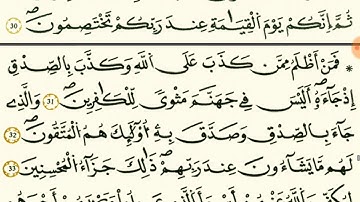 ثُمَّ إِنَّكُمْ يَوْمَ الْقِيَامَةِ عِندَ رَبِّكُمْ تَخْتَصِمُونَ 30
* فَمَنْ أَظْلَمُ مِمَّن كَذَبَ عَلَى اللَّهِ وَكَذَّبَ بِالصِّدْقِ
إِذْ جَاءَهُ أَلَيْسَ فِي جَهَنَّمَ مَثْوًى لِّلْكَافِرِينَ 31 وَالَّذِي
جَاءَ بِالصِّدْقِ وَصَدَّقَ بِهِ أُوْلَٰئِكَ هُمُ الْمُتَّقُونَ 32
لَهُم مَّا يَشَاءُونَ عِندَ رَبِّهِمْ ذَٰلِكَ جَزَاءُ الْمُحْسِنِينَ 33